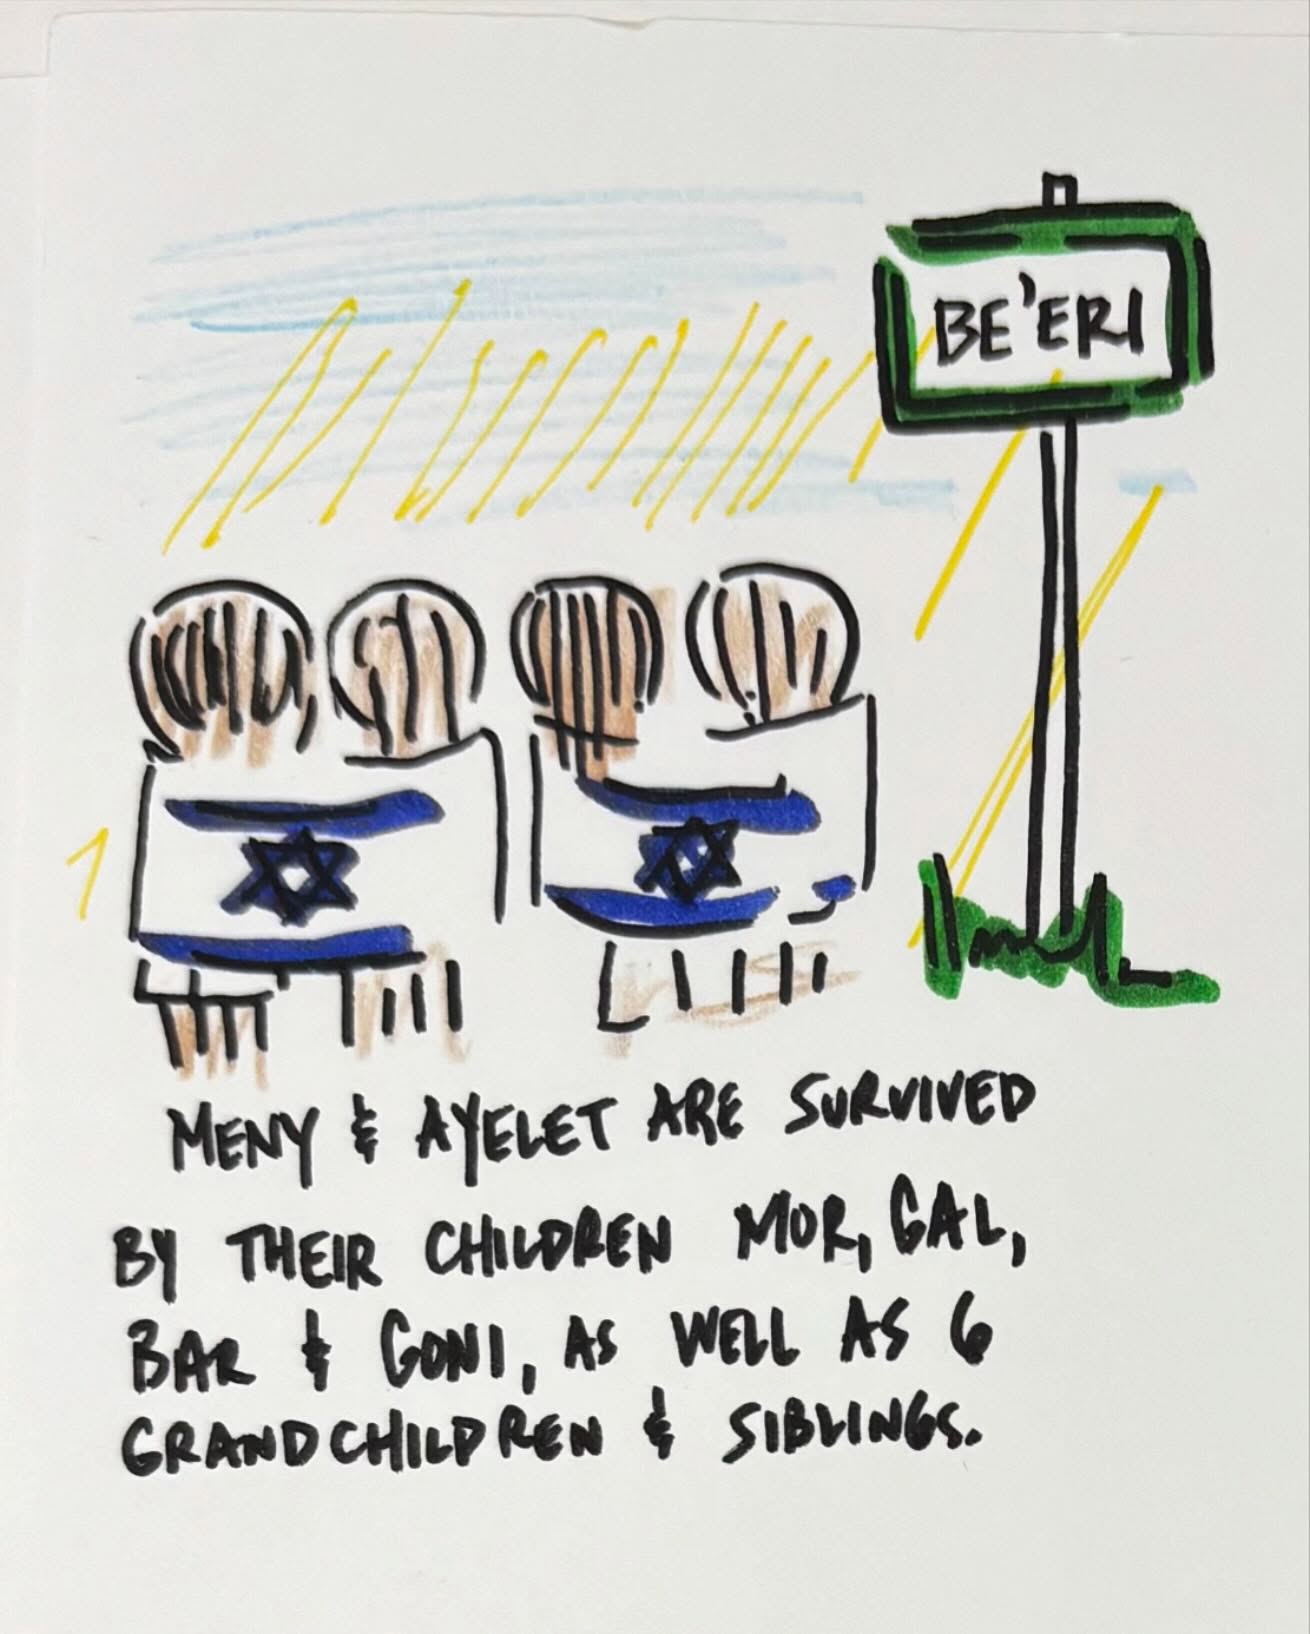 BE'ERI
MENY & AYELET ARE SURVIVED
BY THEIR CHILDREN MOR, GAL,
BAR & GONI, AS WELL AS 6
GRANDCHILDREN & SIBLINGS.